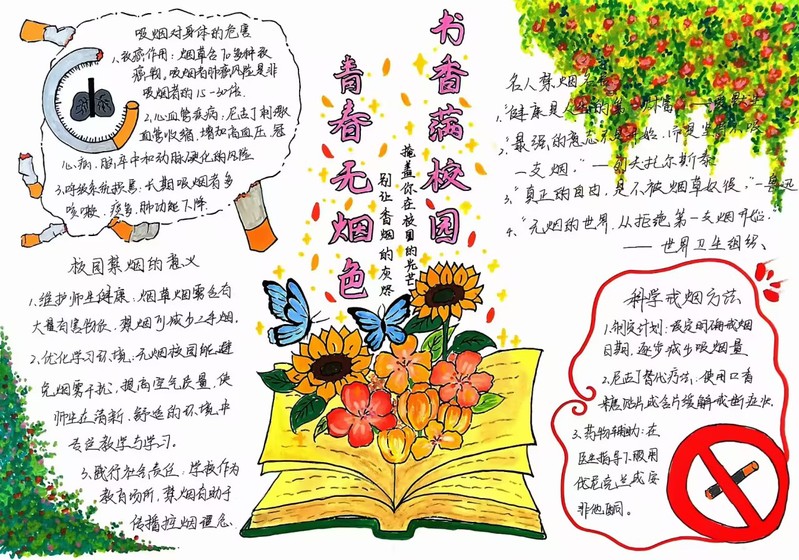 书香满校园
青春无烟色
掩盖你在校园的光芒
别让香烟的灰烬
吸烟对身体的危害
1、致癌作用：烟草含70多种致
癌物，吸烟者肺癌风险是非
吸烟者的15-30倍。
2、心血管疾病：尼古丁刺激
血管收缩，增加高血压、冠
心病、脑卒中和动脉硬化的风险
3、呼吸系统损害：长期吸烟有多
咳嗽、痰多、肺功能下降
校园禁烟的意义
1、维护师生健康：烟草烟雾含有
大量有害物质，禁烟可减少二手烟。
2、优化学习环境：无烟校园能避
免烟雾干扰，提高空气质量，使
师生在清新、舒适的环境中
专注教学与学习。
3、践行社会责任：学校作为
教育场所，禁烟有助于
传播控烟理念。
名人禁烟名言
1、"健康是人生的第一财富。"——
2、"最强的意志无是开始，而是
一支烟。"——列夫托尔斯泰
3、"真正的自由，是不被烟草奴役。"——鲁迅
4、"无烟的世界，从拒绝第一支烟开始。"
——世界卫生组织、
科学戒烟方法
1、制定计划：设定明确戒烟
日期，逐步减少吸烟量
2、尼古丁替代疗法：使用口香
糖、贴片或含片缓解戒断症状。
3、药物辅助：在
医生指导下服用
伐尼克兰或安
非他酮。